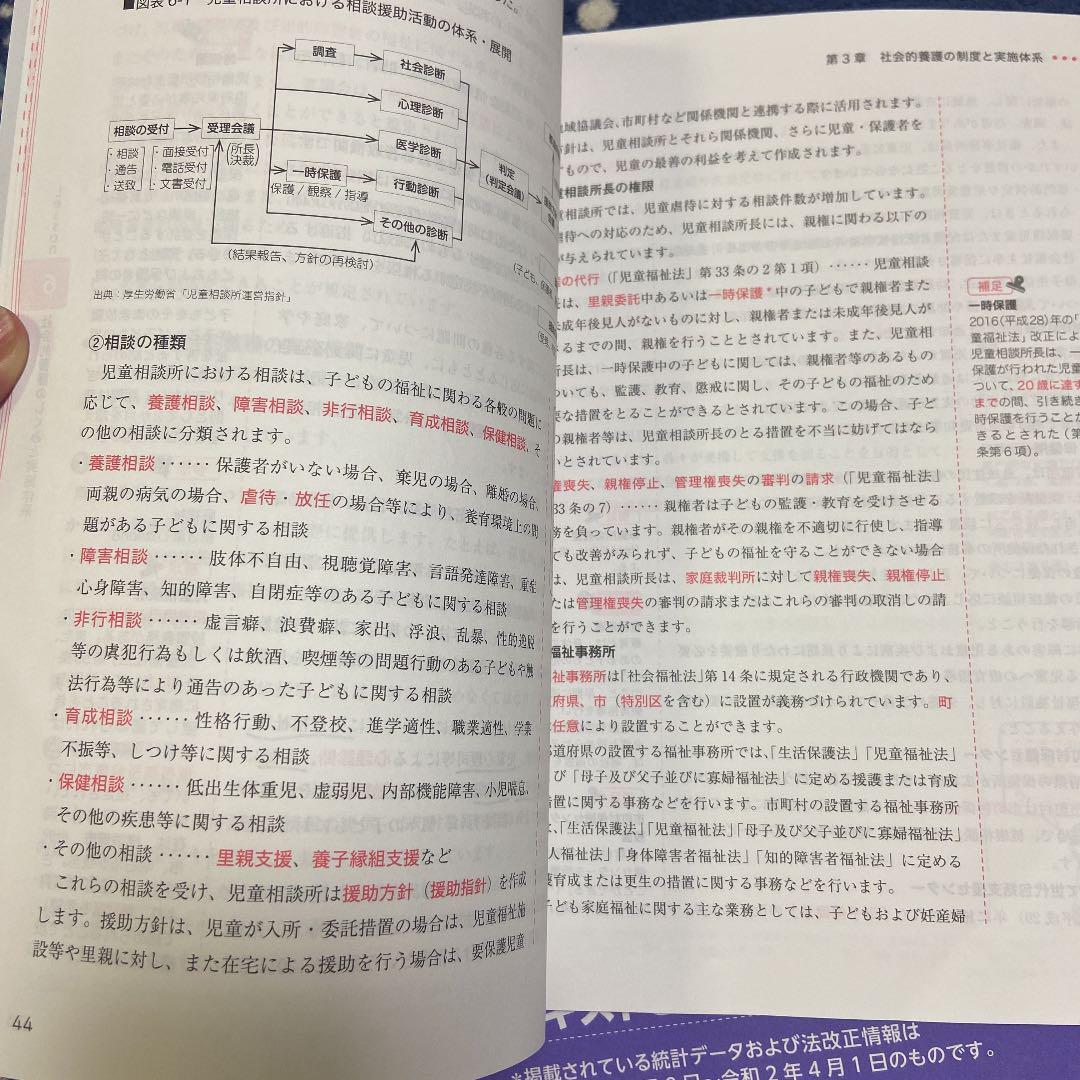 ■図表6-1 児童相談所における相談援助活動の体系・展開
調査
社会診断
心理診断
相談の受付
受理会議
医学診断
・相談
・通告
・送致
・面接受付
・電話受付
・文書受付
(所長決裁)
一時保護
保護/観察/指導
行動診断
判定
(判定会議)
その他の診断
(結果報告、方針の再検討)
出典:厚生労働省「児童相談所運営指針」
②相談の種類
児童相談所における相談は、子どもの福祉に関わる各般の問題に
応じて、養護相談、障害相談、非行相談、育成相談、保健相談、そ
の他の相談に分類されます。
・養護相談……保護者がいない場合、棄児の場合、離婚の場合、
両親の病気の場合、虐待・放任の場合等により、養育環境上の問
題がある子どもに関する相談
・障害相談……肢体不自由、視聴覚障害、言語発達障害、重症
心身障害、知的障害、自閉症等のある子どもに関する相談
・非行相談……虚言癖、浪費癖、家出、浮浪、乱暴、性的逸脱
等の虞犯行為もしくは飲酒、喫煙等の問題行動のある子どもや触
法行為等により通告のあった子どもに関する相談
・育成相談……性格行動、不登校、進学適性、職業適性、学業
不振等、しつけ等に関する相談
・保健相談……低出生体重児、虚弱児、内部機能障害、小児喘息、
その他の疾患等に関する相談
・その他の相談……里親支援、養子縁組支援など
これらの相談を受け、児童相談所は援助方針(援助指針)を作成
します。援助方針は、児童が入所・委託措置の場合は、児童福祉施
設等や里親に対し、また在宅による援助を行う場合は、要保護児童
44
第3章 社会的養護の制度と実施体系
域協議会、市町村など関係機関と連携する際に活用されます。
針は、児童相談所とそれら関係機関、さらに児童・保護者を
もので、児童の最善の利益を考えて作成されます。
相談所長の権限
相談所では、児童虐待に対する相談件数が増加しています。
待への対応のため、児童相談所長には、親権に関わる以下の
与えられています。
の代行(「児童福祉法」第33条の2第1項)……児童相談
は、里親委託中あるいは一時保護*中の子どもで親権者また
未成年後見人がないものに対し、親権者または未成年後見人が
るまでの間、親権を行うこととされています。また、児童相
は、一時保護中の子どもに関しては、親権者等のあるもの
ついても、監護、教育、懲戒に関し、その子どもの福祉のため
な措置をとることができるとされています。この場合、子ど
の親権者等は、児童相談所長のとる措置を不当に妨げてはなら
いとされています。
権喪失、親権停止、管理権喪失の審判の請求(「児童福祉法」
33条の7)……親権者は子どもの監護・教育を受けさせる
務を負っています。親権者がその親権を不適切に行使し、指導
ても改善がみられず、子どもの福祉を守ることができない場合
は、児童相談所長は、家庭裁判所に対して親権喪失、親権停止
たは管理権喪失の審判の請求またはこれらの審判の取消しの請
を行うことができます。
福祉事務所
祉事務所は「社会福祉法」第14条に規定される行政機関であり、
府県、市(特別区を含む)に設置が義務づけられています。町
任意により設置することができます。
道府県の設置する福祉事務所では、「生活保護法」「児童福祉法」
び「母子及び父子並びに寡婦福祉法」に定める援護または育成
置に関する事務などを行います。市町村の設置する福祉事務所
、「生活保護法」「児童福祉法」「母子及び父子並びに寡婦福祉法」
人福祉法」「身体障害者福祉法」「知的障害者福祉法」に定める
育成または更生の措置に関する事務などを行います。
子ども家庭福祉に関する主な業務としては、子どもおよび妊産婦
補足
一時保護
2016(平成28)年の「
童福祉法」改正によ
児童相談所長は、一
保護が行われた児童
ついて、20歳に達す
までの間、引き続き
時保護を行うことが
きるとされた(第
条第6項)。
*掲載されている統計データおよび法改正情報は
令和2年4月1日のものです。